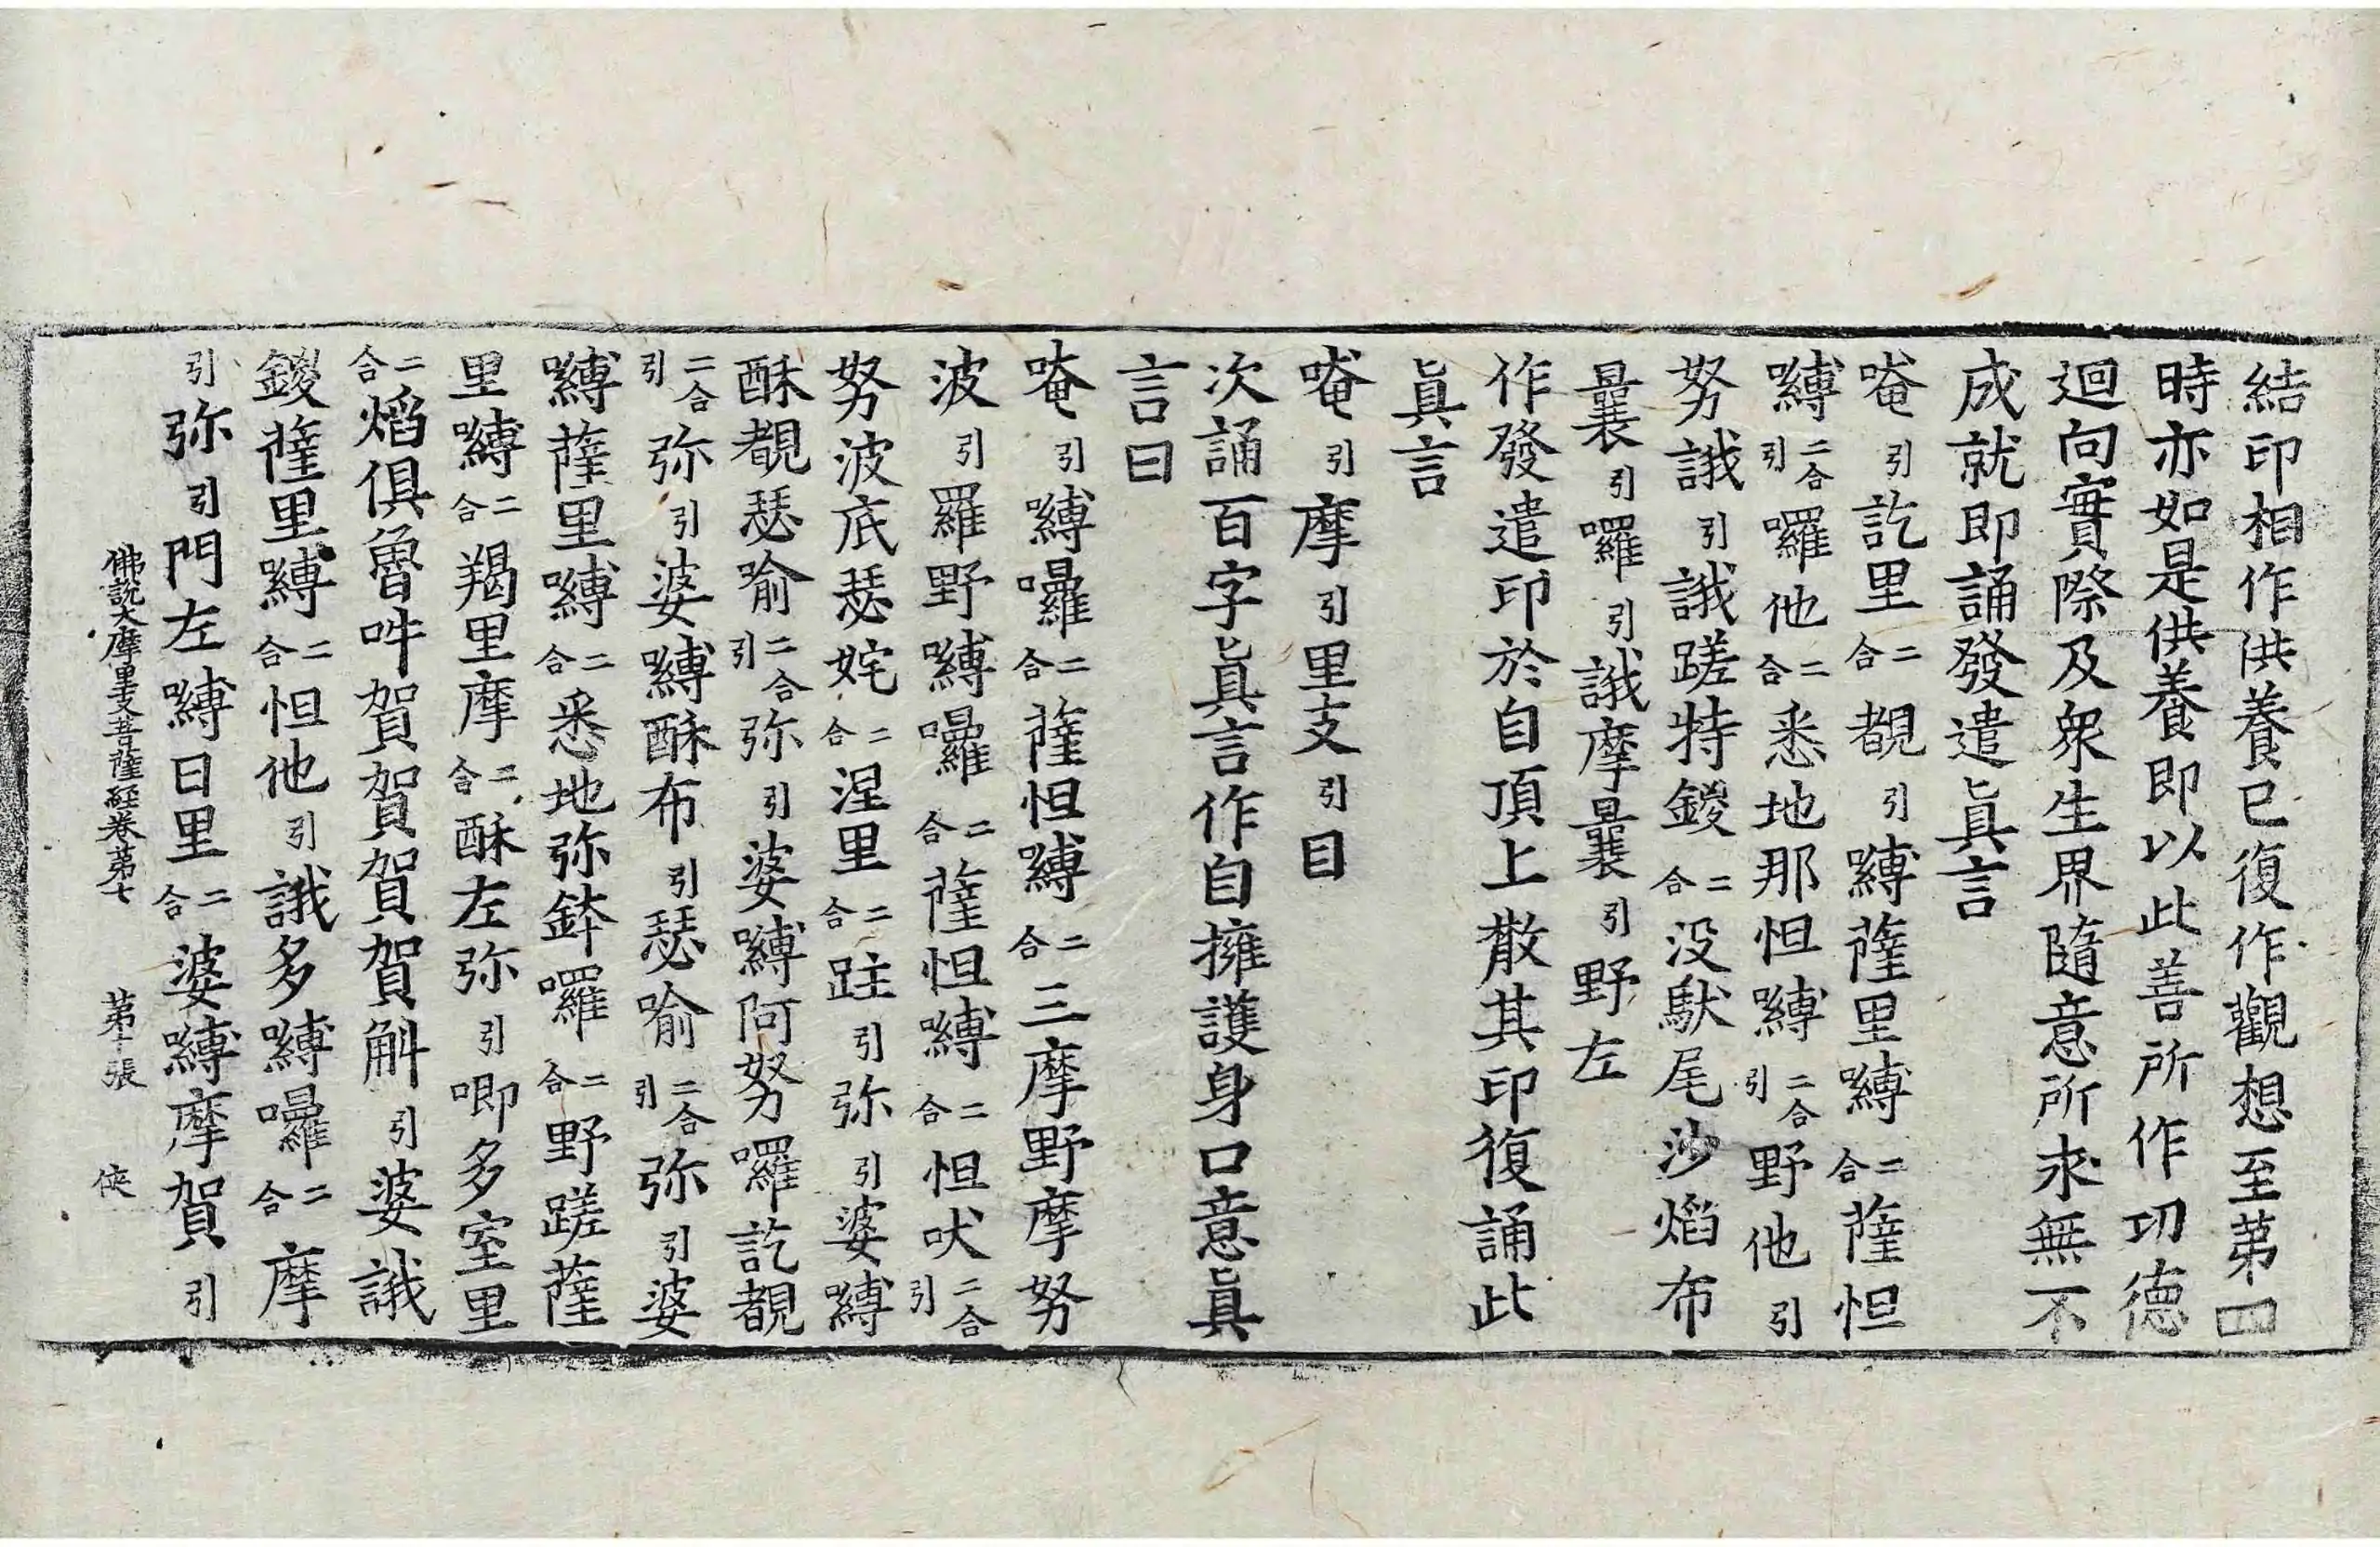 結印相作供養已復作觀想至第四
時亦如是供養即以此善所作功德
迴向實際及衆生界隨意所求無不
成就即誦發遣眞言
唵引訖里二合覩引嚩薩里嚩二合薩怛
嚩二合引囉他二合悉地那怛嚩二合引野他引
努誐引誐蹉特鑁二合没馱尾沙焰布
曩引囉引誐摩曩引野左
作發遣印於自頂上散其印復誦此
眞言
唵引摩引里支引目
次誦百字眞言作自擁護身口意眞
言曰
唵引嚩囉二合薩怛嚩二合三摩野摩努
波引羅野嚩囉二合薩怛嚩二合怛吠二合引
努波底瑟姹二合涅里二合跓引弥引婆嚩
酥覩瑟喻二合引弥引婆嚩阿努囉訖覩
二合引弥引婆嚩酥布引瑟喻二合引弥引婆
嚩薩里嚩二合悉地弥鉢囉二合野蹉薩
里嚩二合羯里摩二合酥左弥引唧多室里
二合焰俱魯吽賀賀賀賀斛引婆誐
鑁薩里嚩二合怛他引誐多嚩囉二合摩
引弥引門左嚩日里二合婆嚩摩賀引
佛說大摩里支菩薩経卷第七 第十張 俠